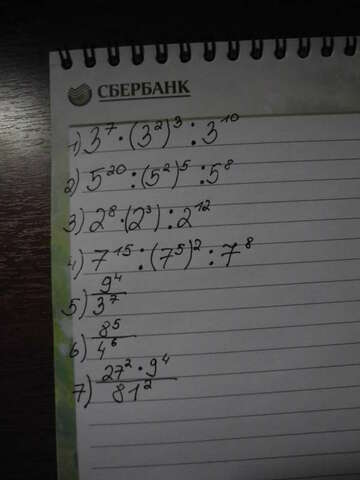 СБЕРБАНК
1) 3⁷ · (3²)³ : 3¹⁰
2) 5²⁰ : (5²)⁵ : 5⁸
3) 2⁸ · (2³) : 2¹²
4) 7¹⁵ : (7⁵)² : 7⁸
5) 9⁴/3⁷
6) 8⁵/4⁶
7) 27² · 9⁴/81²